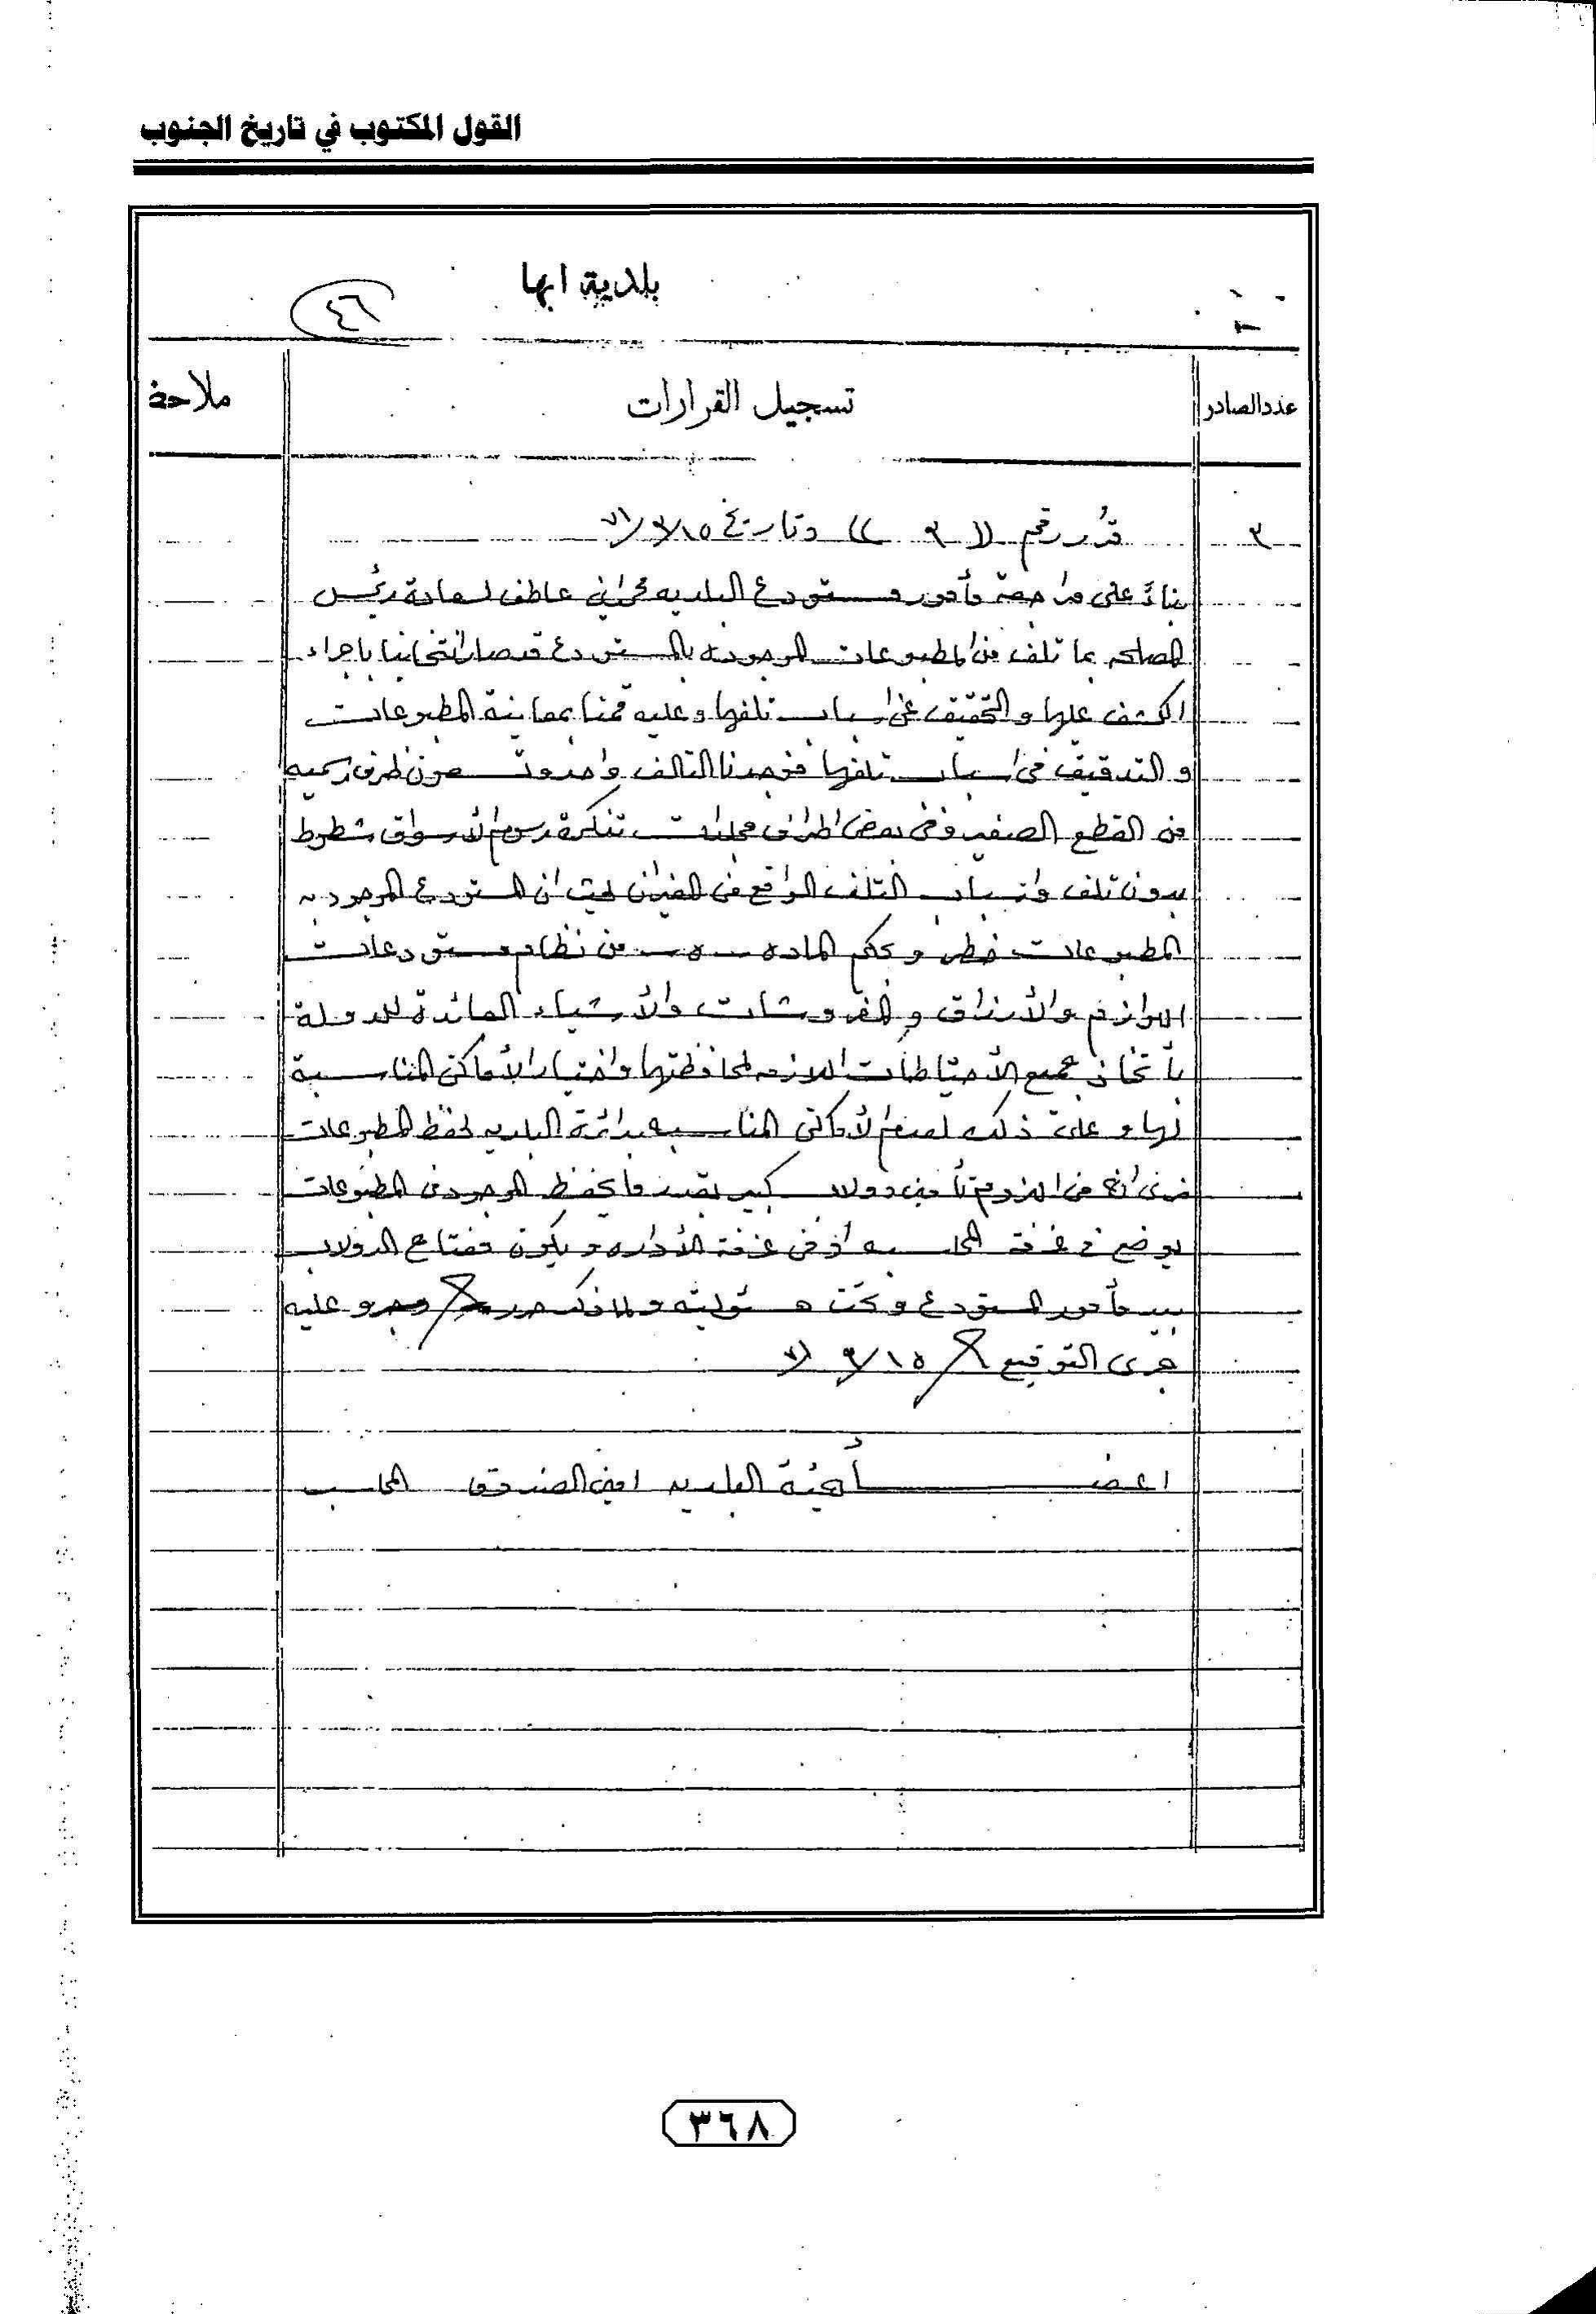 القول المكتوب في تاريخ الجنوب
بلدية ابها
٤٦
عدد الصادر تسجيل القرارات ملاحظ
٣ قرر رقم (( ٣ )) وتاريخ ٧١/٣/١٥
بناءً على مراجعة مأمور مستودع البلديه عاطف لسعادة رئيس
المصلحه بما تلف من المطبوعات الموجوده بالمستودع قد صار انتخابنا باجراء
الكشف عليها والتحقيق عن اسباب تلفها وعليه قمنا بمعاينة المطبوعات
والتدقيق في اسباب تلفها فوجدنا التالف واحد وتسعون ظرف رسميه
من القطع الصغير وفي بعض اطراف مجلدات تذكرة رسوم الأسواق شطوط
بدون تلف واسباب التلف الواقع من الفيران حيث ان المستودع الموجود به
المطبوعات خطر وبحكم الماده ــ ٥ ــ من نظام مستودعات
اللوازم والأرزاق والمفروشات والأشياء العائدة للدولة
بأتخاذ جميع الأحتياطات اللازمه لمحافظتها واختيار الأماكن المناسبة
لها وعلى ذلك لعدم الأماكن المناسبه بدائرة البلديه لحفظ المطبوعات
نرى انه من اللزوم تأمين دولاب كبير بقدر ما يحفظ الموجود من المطبوعات
يوضع في غرفة المحاسبه او في غرفة الأداره ويكون مفتاح الدولاب
بيد مأمور المستودع وتحت مسئوليته ولما ذكر حرر وعليه
جرى التوقيع ٧١/٣/١٥
اعضاء هيئة البلديه امين الصندوق المحاسب
٣٦٨